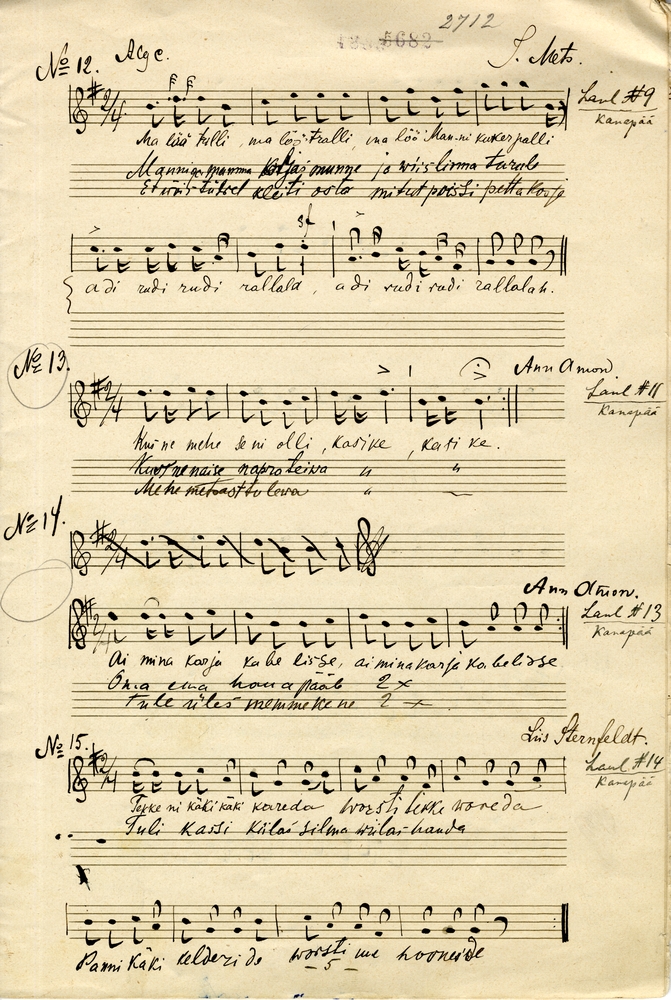 2712
5682
No 12. Aege. J. Mets.
Laul #9
Kanepää
Ma löö trilli, ma löö tralli, ma löö Manni kukerpalli
Manniga mamma munne ja wiis linna turule
kleiti osta mitut poissi petta
adi rudi rudi rallala, adi rudi rudi rallalah.
No 13. Ann Amon
Laul #11
Kanepää
Kui ne mehe seni olli, kasike, kasike.
Kuos ne naise napro teiwa " "
Mehe metsast tulewa "
No 14.
Ann Amon.
Laul #13
Kanepää
Ai mina karja kabelisse, ai mina karja kabelisse
Oma ema haua pääle 2 x
Tule üles memmekene 2 x
No 15. Liis Sternfeldt.
Laul #14
Kanepää
Tekke ni käki käki kareda worsti tekke woreda
Tuli kassi silma wälas handa
Panni käki kelderide worsti me hooneide
- 5 -